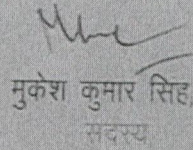 मुकेश कुमार सिंह
सदस्य